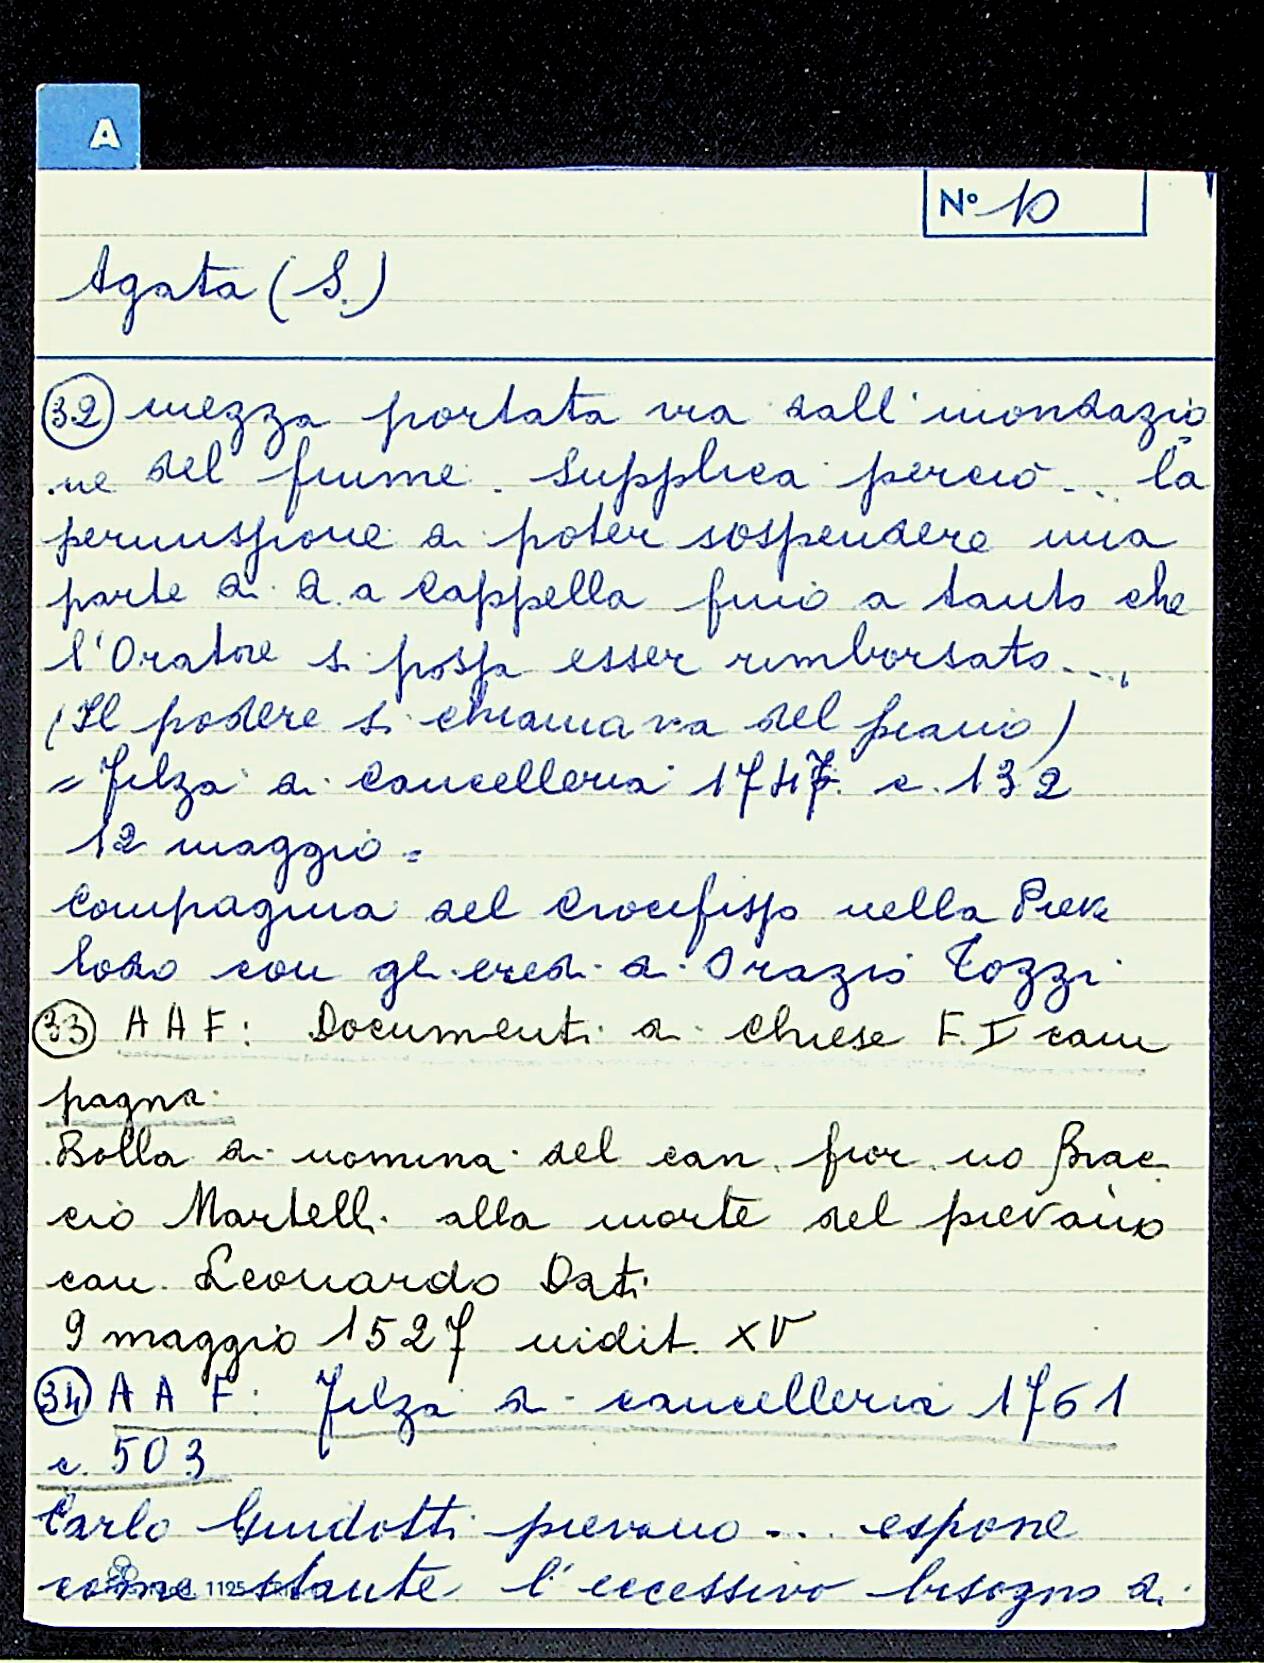 A
N° 10
Agata (S.)
32 mezza portata via dall'inondazio
ne del fiume. Supplica perciò... la
permissione di poter sospendere una
parte di d.a Cappella finò a tanto che
l'Oratore si possa esser rimborsato...,
(Il podere si chiamava del piano)
= Filza di Cancelleria 1747 c. 132
12 maggio =
Compagnia del Crocifisso nella Pieve
lodo con gli eredi di Orazio Tozzi
33 A A F: Documenti di Chiese F. I cam
pagna.
Bolla di nomina del can. fior.no Brac
cio Martelli alla morte del pievano
can. Leonardo Dati
9 maggio 1527 indit. XV
34 A A F: Filza di cancelleria 1761
c. 503
Carlo Guidotti pievano... espone
come stante l'eccessivo bisogno di